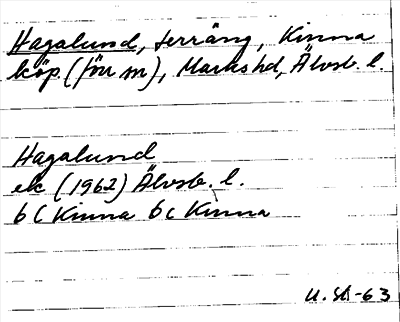 Hagalund, terräng, Kinna
köp (förr m), Marks hd, Älvsb. l.
Hagalund
ek (1962) Älvsb. l.
6 C Kinna 6 c Kinna
U. St -63